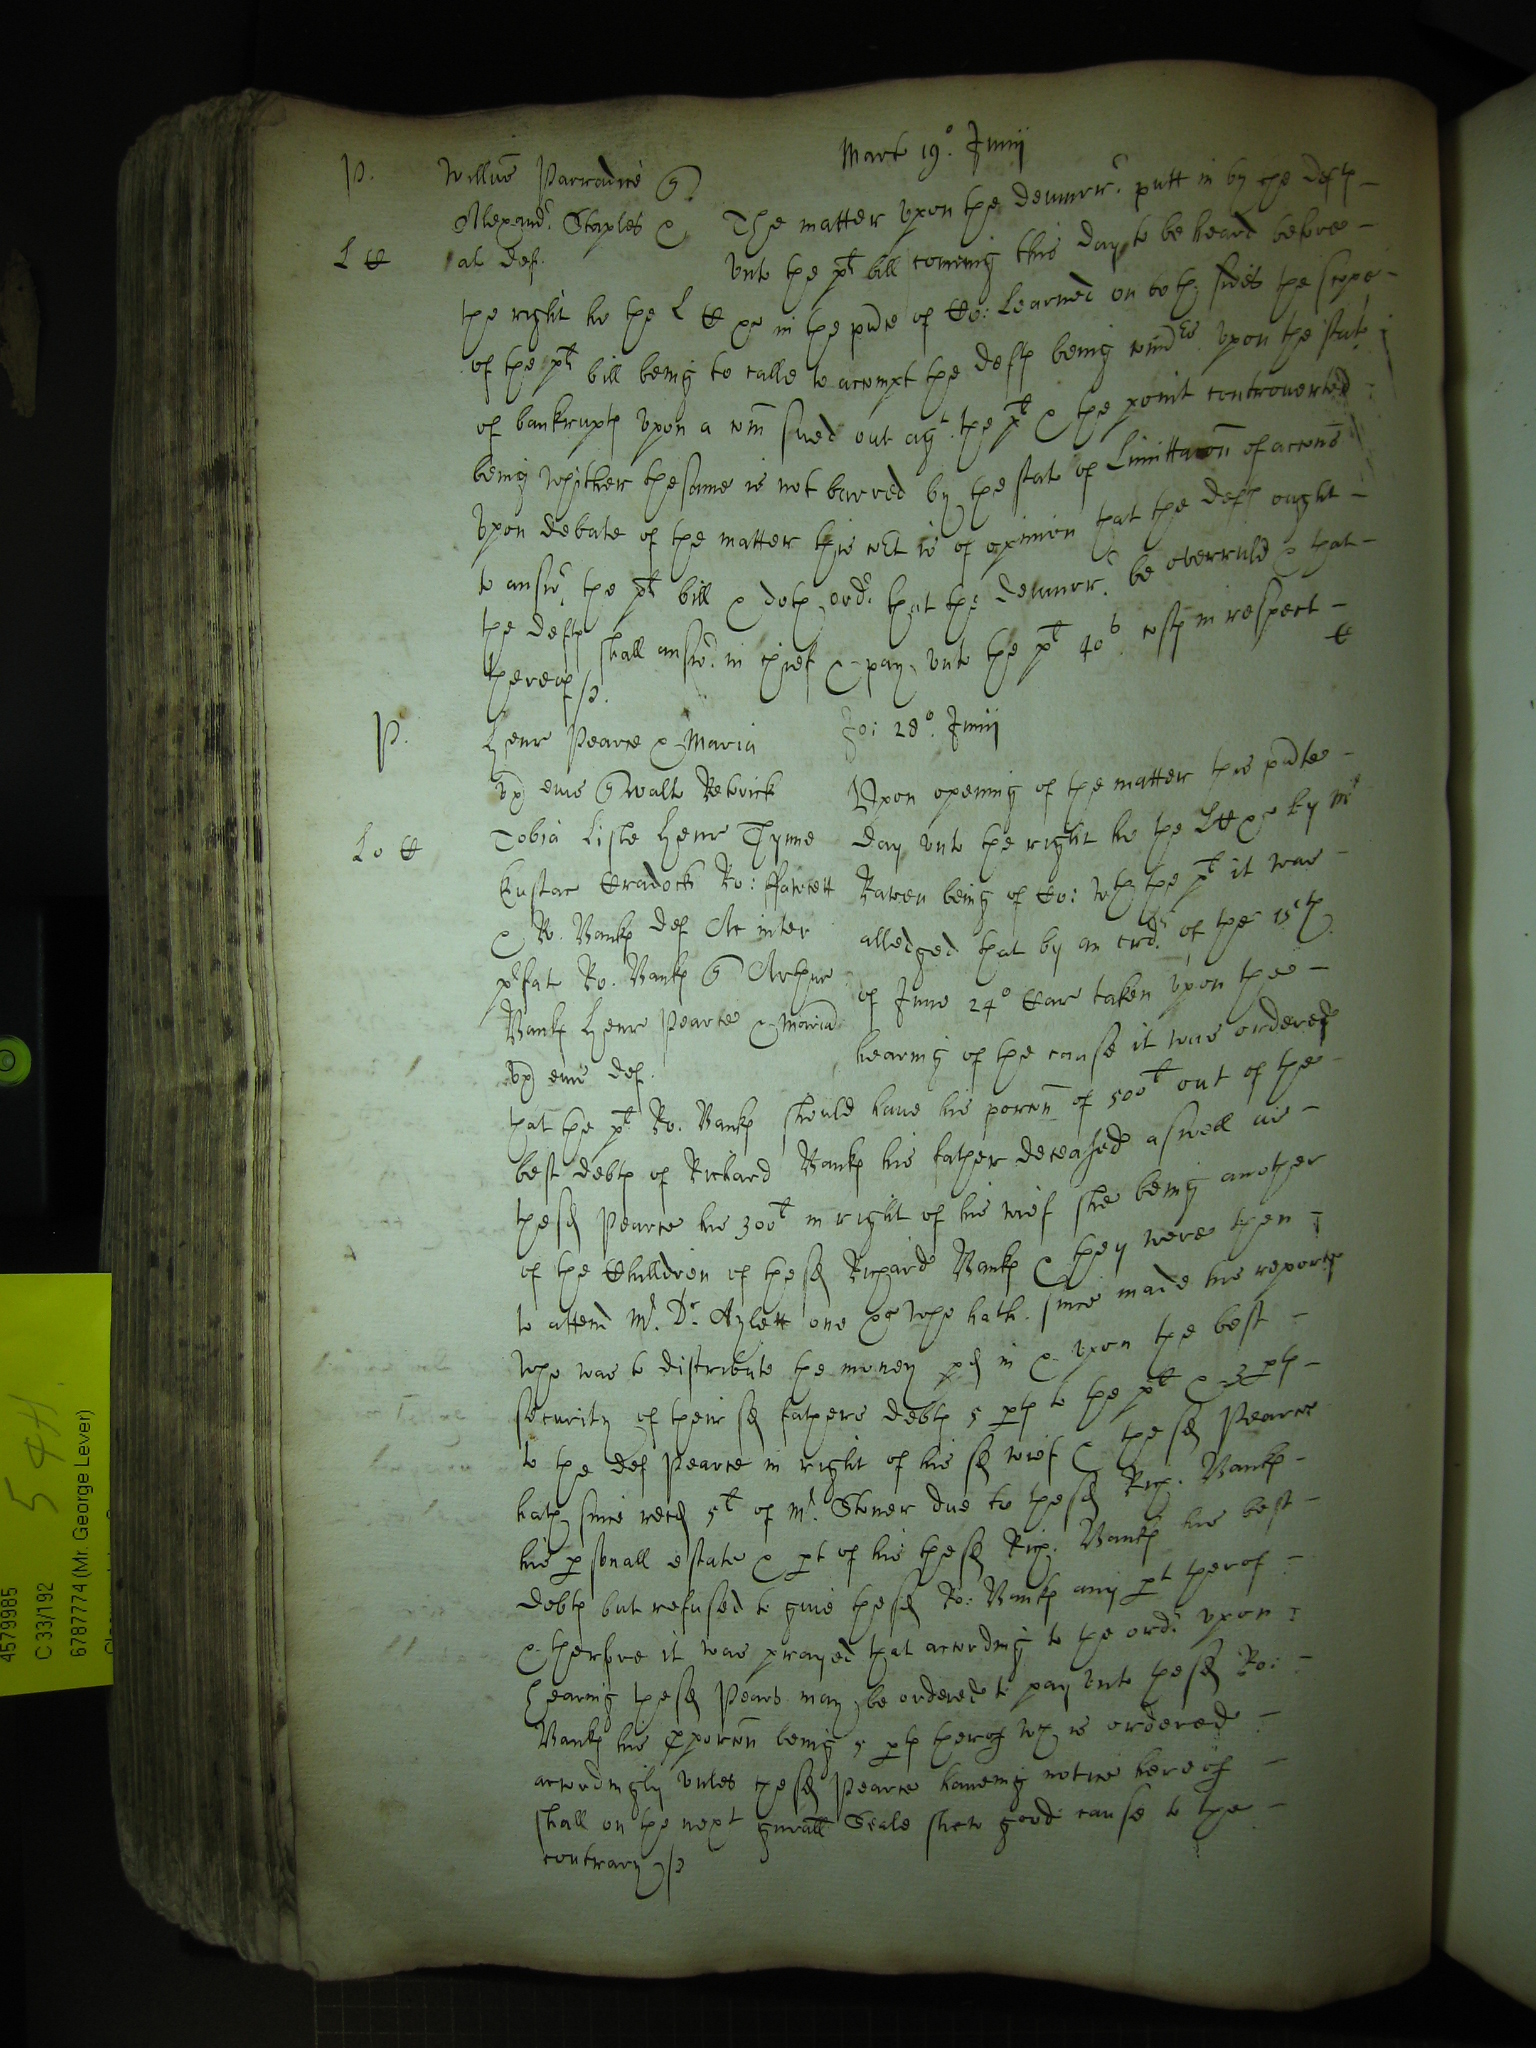 Mart 19º. Junij
P. Willus Parradice q
Alexand.r Staples & The matter upon the demurr.r putt in by the deftℯ
L C al def. unto the plt bill coming this day to be heard before
the right ho the L C &c in the pñce of Co: Learned on both sides the scope
of the plt bill being to calle to accompt the deftℯ being comrs. upon the statℯ
of bankruptℯ upon a com̃ sued out agt. the plt & the point controverted
being whither the same is not barred by the stat of Limittacoñ of accons
Upon debate of the matter this coᵗ is of opinion that the deftℯ ought
to answ.r the plt bill & doth ord.r that the demurr.r be overruld & that
the deftℯ shall answ.r in chief & pay unto the plt 40s. costℯ in respect
thereof /.
C
P. Henr Pearce & Maria Jo: 28º. Junij
ux eius q walt Rebrick Upon opening of the matter this p̃nte
Lo C Tobia Lisle Henr Thynne day unto the right ho the LC &c by Mr
Eustac Cradock Ro: ffawcett Rawen being of Co: wth the plt it was
& Ro. Bankℯ def Ac inter alledged that by an ord.r of the 15th
p̃fat Ro. Bankℯ q Arthur of June 24º Car taken upon the
Bankℯ Henr Pearce & Maria hearing of the cause it was ordered
ux eius def.
that the plt Ro. Bankℯ should have his porcoñ of 500l out of the
best debtℯ of Richard Bankℯ his father deceased aswell as
the sd Pearce his 300l in right of his wief she being another
of the Children of the sd Richard Bankℯ & they were then
to attend Mr. Dr. Aylett one &c who hath since made his reporte
who was to distribute the money pd in & upon the best
security of their sd fathers debtℯ 5 ptℯ to the plt & 3 ptℯ
to the def Pearce in right of his sd wief & the sd Pearce
hath since recd 5l of Mr. Stoner due to the sd Rich. Bankℯ
his psonall estate & pt of his the sd Rich. Bankℯ his best
debtℯ but refused to give the sd Ro: Bankℯ any pt therof
& therfore it was prayed that according to the ord.r upon
hearing the sd Pearce may be ordered to pay unto the sd Ro:
Bankℯ his pporcoñ being 5 ptℯ therof wch is ordered
accordingly unles the sd Pearce haveing notice hereof
shall on the next gnrall Seale shew good cause to the
contrary /.
4579985
C 33/192
6787774 (Mr. George Lever)